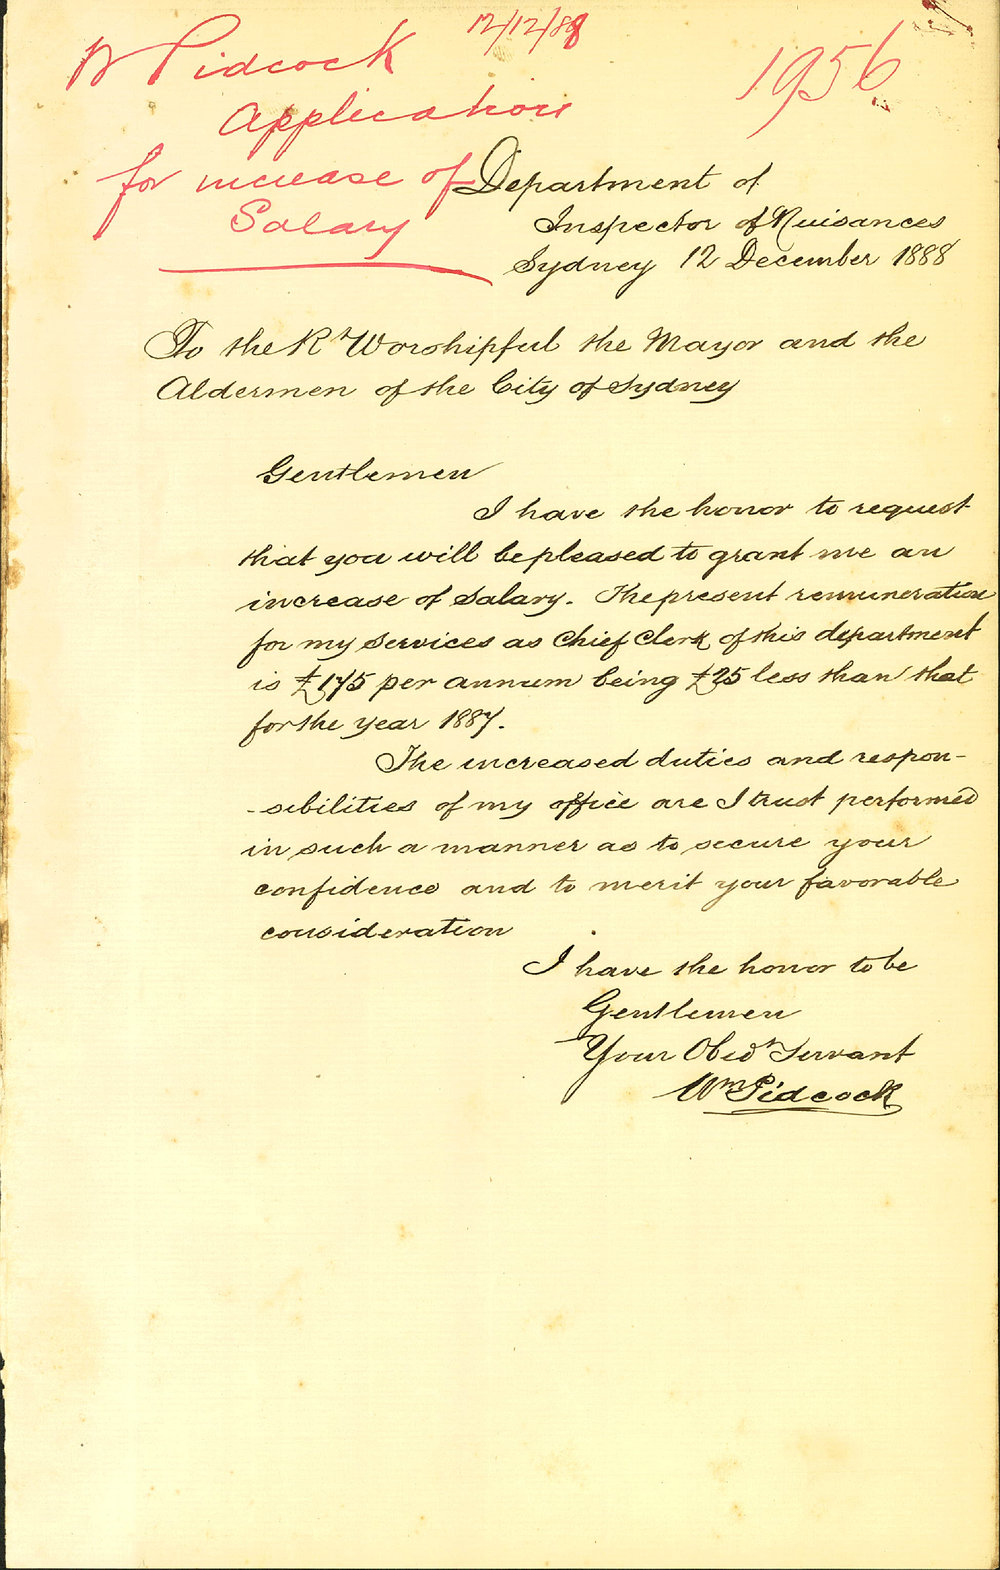 12/12/88
W Pidcock
1956
Application
for increase of
Salary
Department of
Inspector of Nuisances
Sydney 12 December 1888
To the Rt Worshipful the Mayor and the
Aldermen of the City of Sydney
Gentlemen
I have the honor to request
that you will be pleased to grant me an
increase of Salary. The present remuneration
for my services as Chief Clerk of this department
is £175 per annum being £25 less than that
for the year 1887.
The increased duties and respon-
-sibilities of my office are I trust performed
in such a manner as to secure your
confidence and to merit your favorable
consideration
I have the honor to be
Gentlemen
Your Obedt Servant
Wm Pidcock